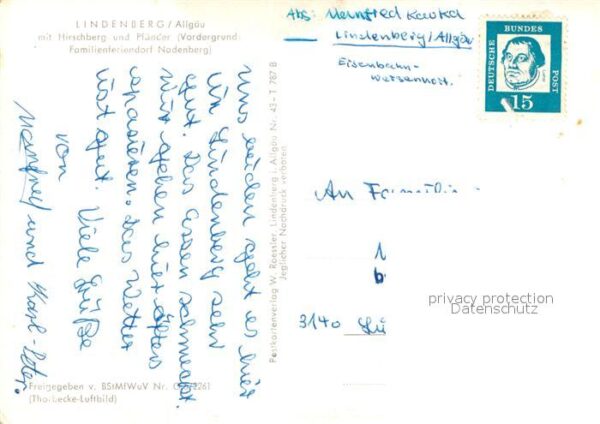 LINDENBERG/Allgäu
mit Hirschberg und Pfänder (Vordergrund:
Familienferiendorf Nadenberg)
Abs: Manfred
Lindenberg/Allgäu
Eisenbahn-
waisenhort.
DEUTSCHE BUNDES POST
15
uns beiden geht es hier
in Lindenberg sehr
gut. Das Essen schmeckt.
wir gehen hier öfters
spazieren. das Wetter
ist gut. Viele Grüße
von
Manfred und Karl-Peter.
Postkartenverlag W. Roessler, Lindenberg i. Allgäu Nr. 43 - T 787 B
Jeglicher Nachdruck verboten
An Familie
1
b.
3140 Lü
privacy protection
Datenschutz
Freigegeben v. BStMfWuV Nr. 2261
(Thorbecke-Luftbild)